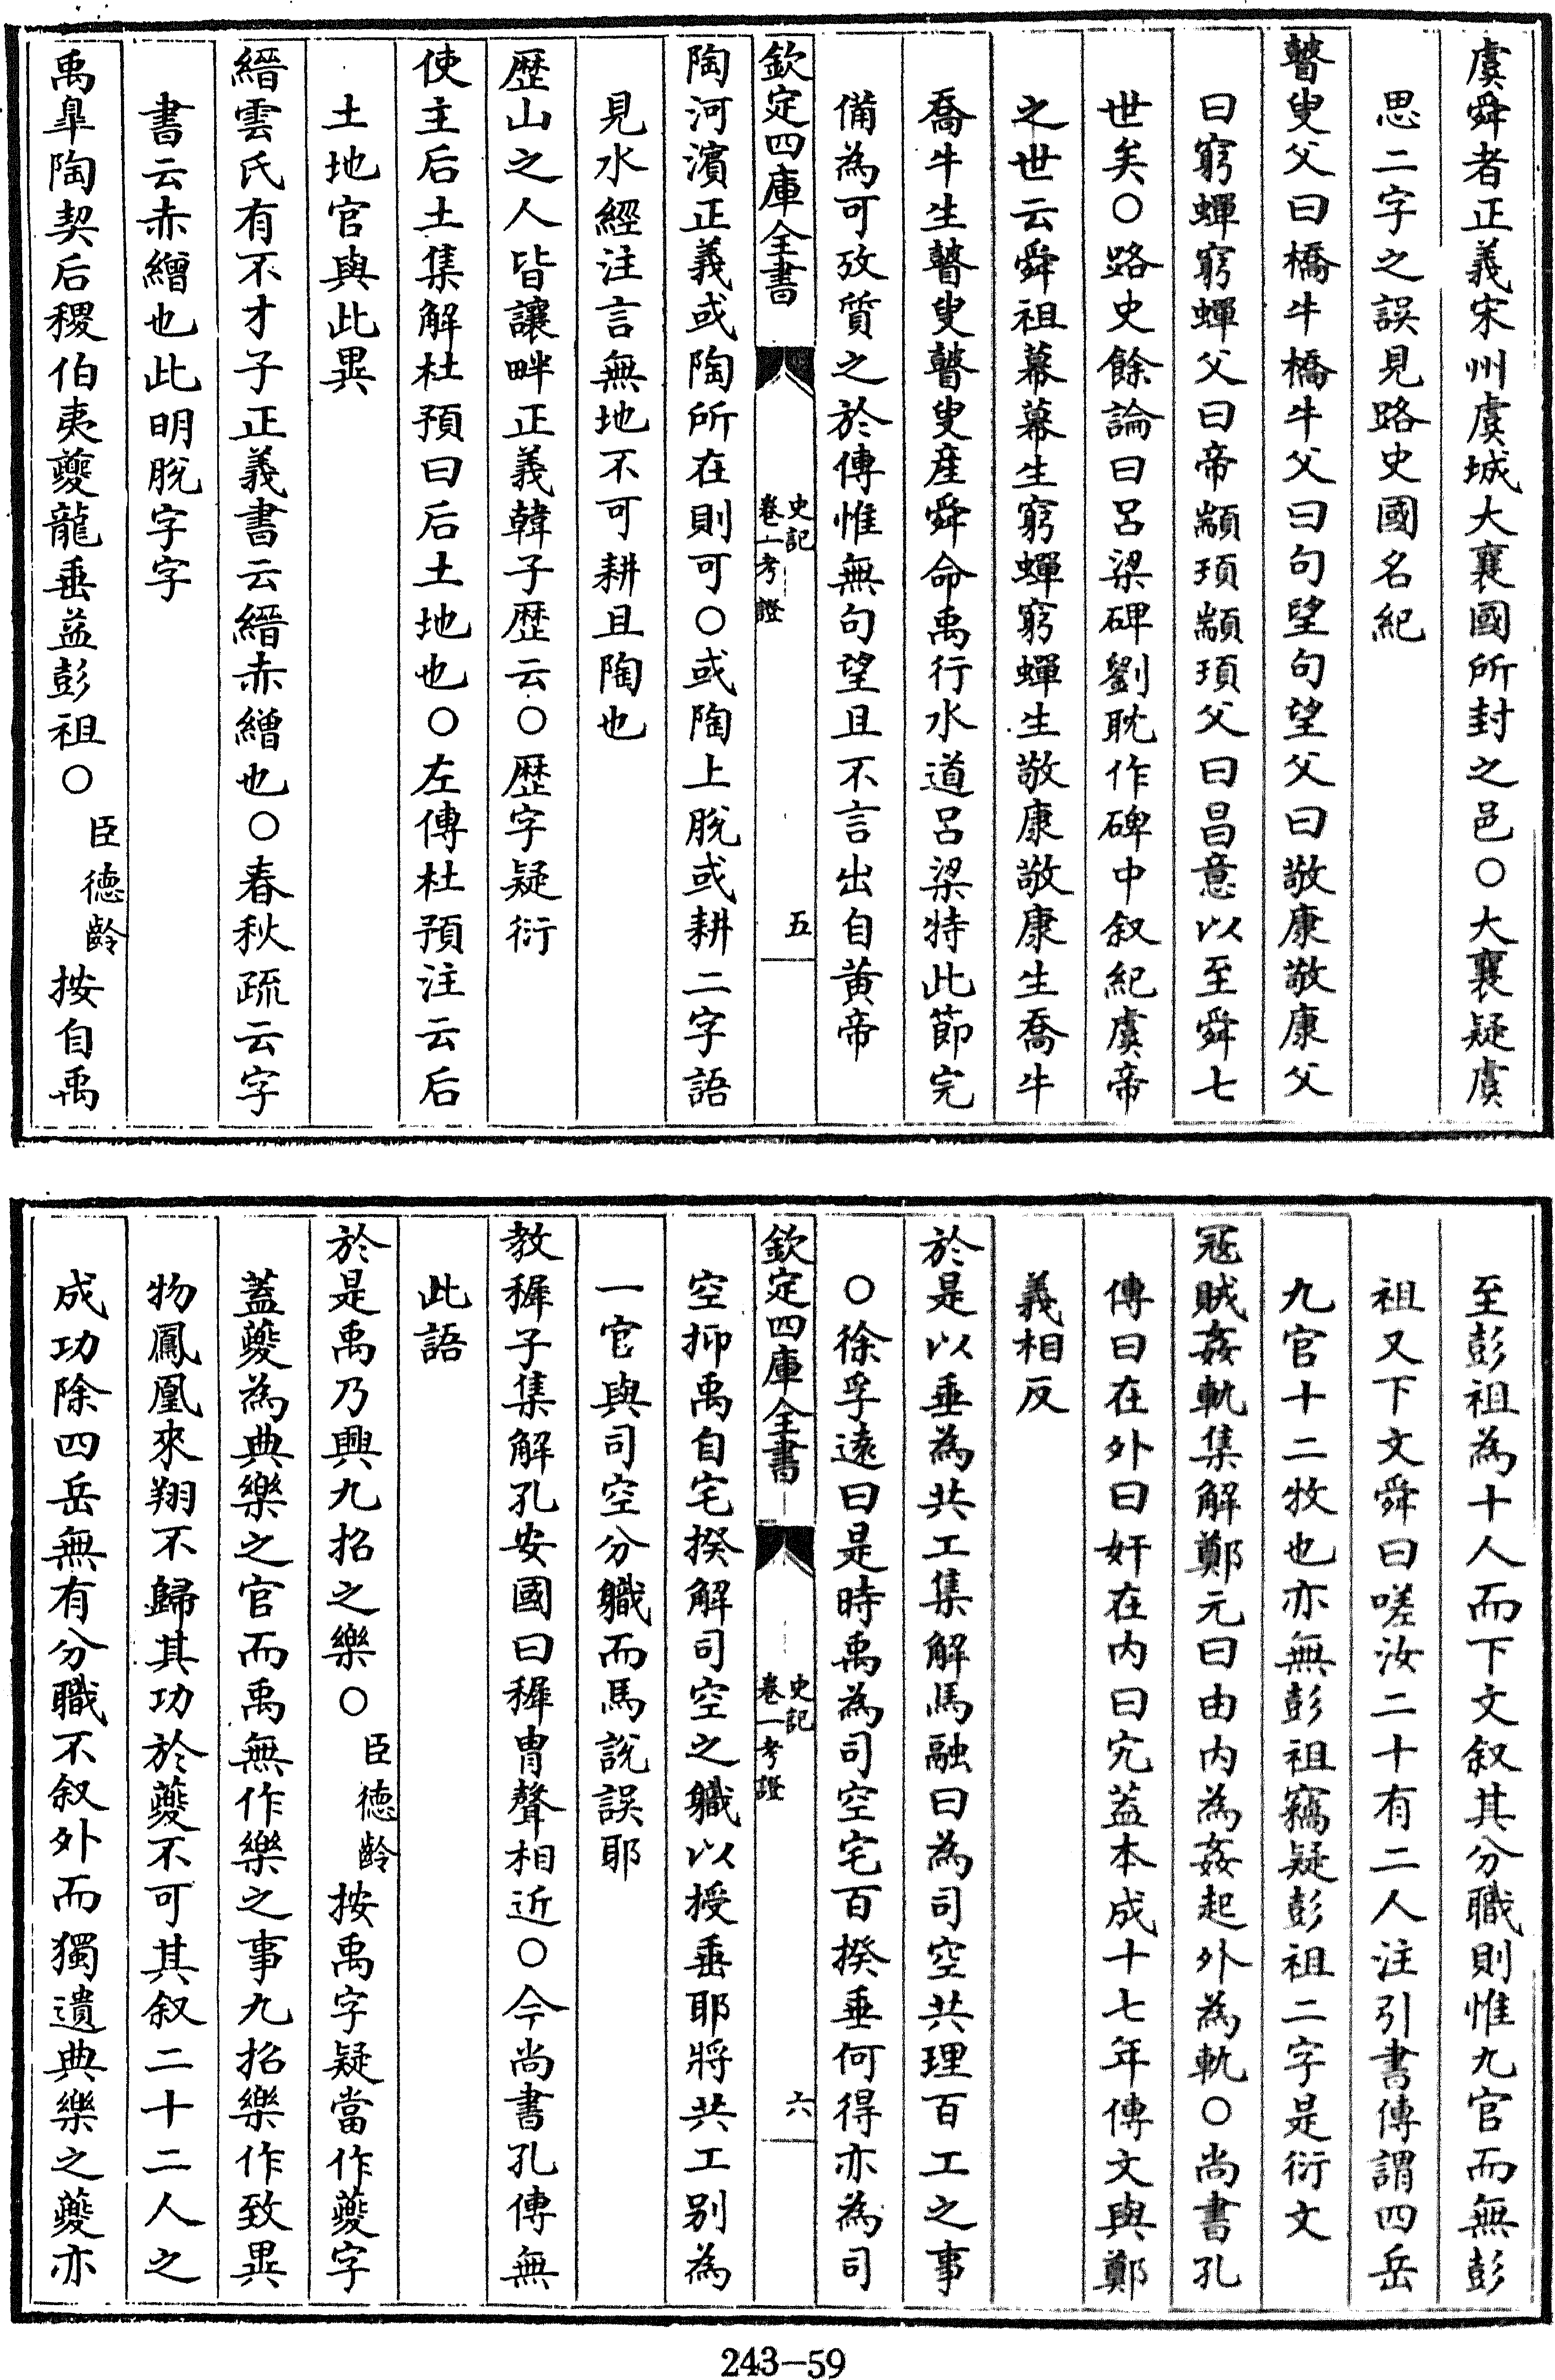 虞舜者正義宋州虞城大襄國所封之邑○大襄疑虞
思二字之誤見路史國名紀
瞽叟父曰橋牛橋牛父曰句望句望父曰敬康敬康父
曰窮蟬窮蟬父曰帝顓頊顓頊父曰昌意以至舜七
世矣○路史餘論曰呂梁碑劉耽作碑中叙紀虞帝
之世云舜祖幕幕生窮蟬窮蟬生敬康敬康生喬牛
喬牛生瞽叟瞽叟産舜命禹行水道呂梁特此節完
備為可攷質之於傳惟無句望且不言出自黄帝
欽定四庫全書
史記
卷一考證
五
陶河濱正義或陶所在則可○或陶上脫或耕二字語
見水經注言無地不可耕且陶也
歴山之人皆讓畔正義韓子歴云○歴字疑衍
使主后土集解杜預曰后土地也○左傳杜預注云后
土地官與此異
縉雲氏有不才子正義書云縉赤繒也○春秋疏云字
書云赤繒也此明脫字字
禹臯陶契后稷伯夷夔龍垂益彭祖○臣德齡按自禹
至彭祖為十人而下文叙其分職則惟九官而無彭
祖又下文舜曰嗟汝二十有二人注引書傳謂四岳
九官十二牧也亦無彭祖竊疑彭祖二字是衍文
冦賊姦軌集解鄭元曰由内為姦起外為軌○尚書孔
傳曰在外曰奸在内曰宄蓋本成十七年傳文與鄭
義相反
於是以垂為共工集解馬融曰為司空共理百工之事
○徐孚遠曰是時禹為司空宅百揆垂何得亦為司
欽定四庫全書
史記
卷一考證
六
空抑禹自宅揆解司空之職以授垂耶將共工别為
一官與司空分職而馬說誤耶
教穉子集解孔安國曰穉胄聲相近○今尚書孔傳無
此語
於是禹乃興九招之樂○臣德齡按禹字疑當作夔字
蓋夔為典樂之官而禹無作樂之事九招樂作致異
物鳳凰來翔不歸其功於夔不可其叙二十二人之
成功除四岳無有分職不叙外而獨遺典樂之夔亦
243-59